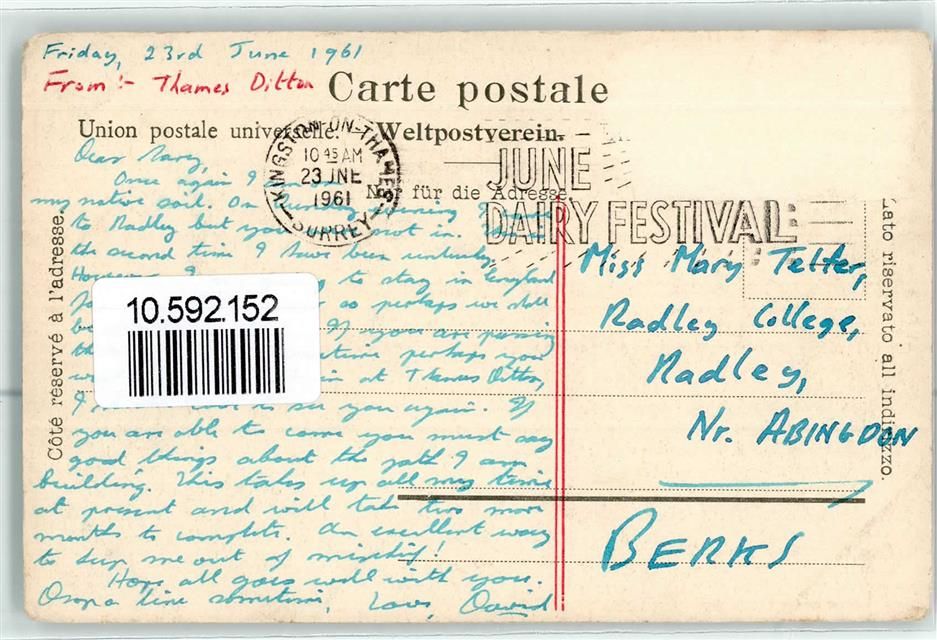 Friday, 23rd June 1961
From :- Thames Ditton
Carte postale
Union postale universelle. Weltpostverein.
Nur für die Adresse.
KINGSTON-ON-THAMES
10 45 AM
23 JNE
1961
SURREY
JUNE
DAIRY FESTIVAL
Côté réservé à l'adresse.
Lato riservato all indirizzo.
Dear Mary,
Once again I am on
my native soil. On Sunday evening I
to Radley but you not in.
the second time I have been unlucky.
However I to stay in England
so perhaps we shall
If you are passing
perhaps you
at Thames Ditton,
I to see you again. If
you are able to come you must say
good things about the path I am
building. This takes up all my time
at present and will take two more
months to complete. An excellent way
to keep me out of mischief!
Hope all goes well with you.
Drop a line sometime, Love, David
10.592.152
Miss Mary Telfer,
Radley College,
Radley,
Nr. ABINGDON
BERKS